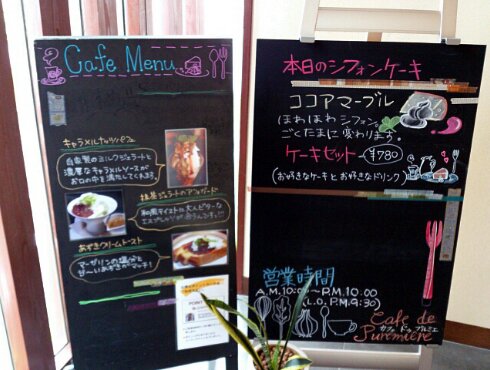 Cafe Menu
キャラメルナッツパフェ
自家製のミルクジェラートと
濃厚なキャラメルソースが
お口の中を満たしてくれます。
抹茶ジェラートのアフォガード
和風テイストに大人ビターな
エスプレッソが合うんです!!
あずきクリームトースト
マーガリンの塩分と
甘〜いあずきがマッチ!
POINT
本日のシフォンケーキ
ココアマーブル
ほわほわシフォン。
ごくたまに変わります。
ケーキセット ¥780
(お好きなケーキとお好きなドリンク)
営業時間
A.M.10:00〜P.M.10:00
(L.O. P.M.9:30)
Cafe de
カフェ ドゥ プルミエ
Puremiére